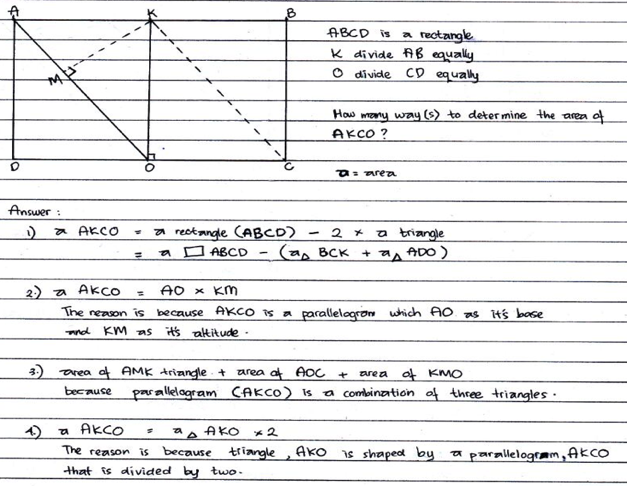 A K B
ABCD is a rectangle
K divide AB equally
O divide CD equally
M
How many way(s) to determine the area of
AKCO ?
D O C
a = area
Answer :
1) a AKCO = a rectangle (ABCD) - 2 x a triangle
= a □ ABCD - (a△ BCK + a△ ADO)
2.) a AKCO = AO x KM
The reason is because AKCO is a parallelogram which AO as it's base
and KM as it's altitude.
3.) area of AMK triangle + area of AOC + area of KMO
because parallelogram (AKCO) is a combination of three triangles.
4.) a AKCO = a△ AKO x 2
The reason is because triangle, AKO is shaped by a parallelogram, AKCO
that is divided by two.